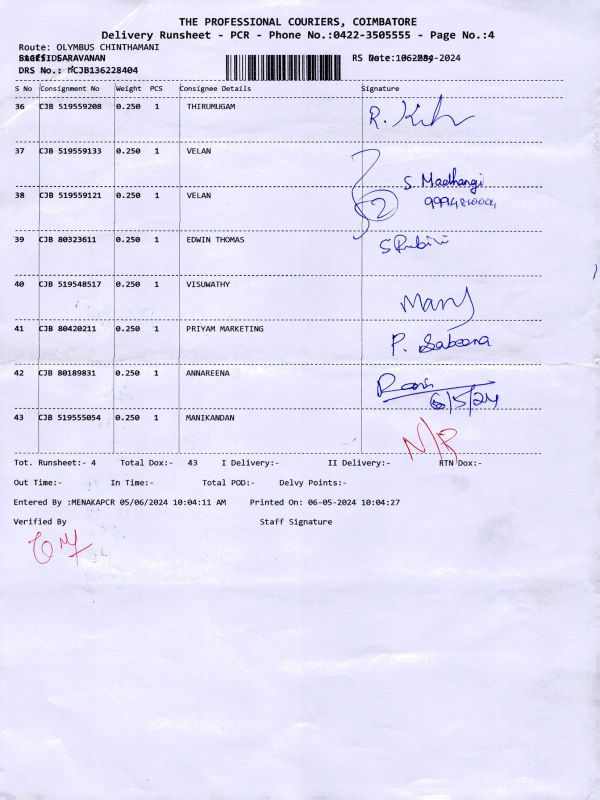 THE PROFESSIONAL COURIERS, COIMBATORE
Delivery Runsheet - PCR - Phone No.:0422-3505555 - Page No.:4
Route: OLYMBUS CHINTHAMANI
SARAVANAN
DRS No.: MCJB136228404
S No Consignment No Weight PCS Consignee Details Signature
36 CJB 519559208 0.250 1 THIRUMUGAM
37 CJB 519559133 0.250 1 VELAN
S. Madhangi
38 CJB 519559121 0.250 1 VELAN
2
39 CJB 80323611 0.250 1 EDWIN THOMAS
40 CJB 519548517 0.250 1 VISUWATHY
Mary
41 CJB 80420211 0.250 1 PRIYAM MARKETING
P. Sabeena
42 CJB 80189831 0.250 1 ANNAREENA
6/5/24
43 CJB 519555054 0.250 1 MANIKANDAN
N/R
Tot. Runsheet:- 4 Total Dox:- 43 I Delivery:- II Delivery:- RTN Dox:-
Out Time:- In Time:- Total POD:- Delvy Points:-
Entered By :MENAKAPCR 05/06/2024 10:04:11 AM Printed On: 06-05-2024 10:04:27
Verified By Staff Signature